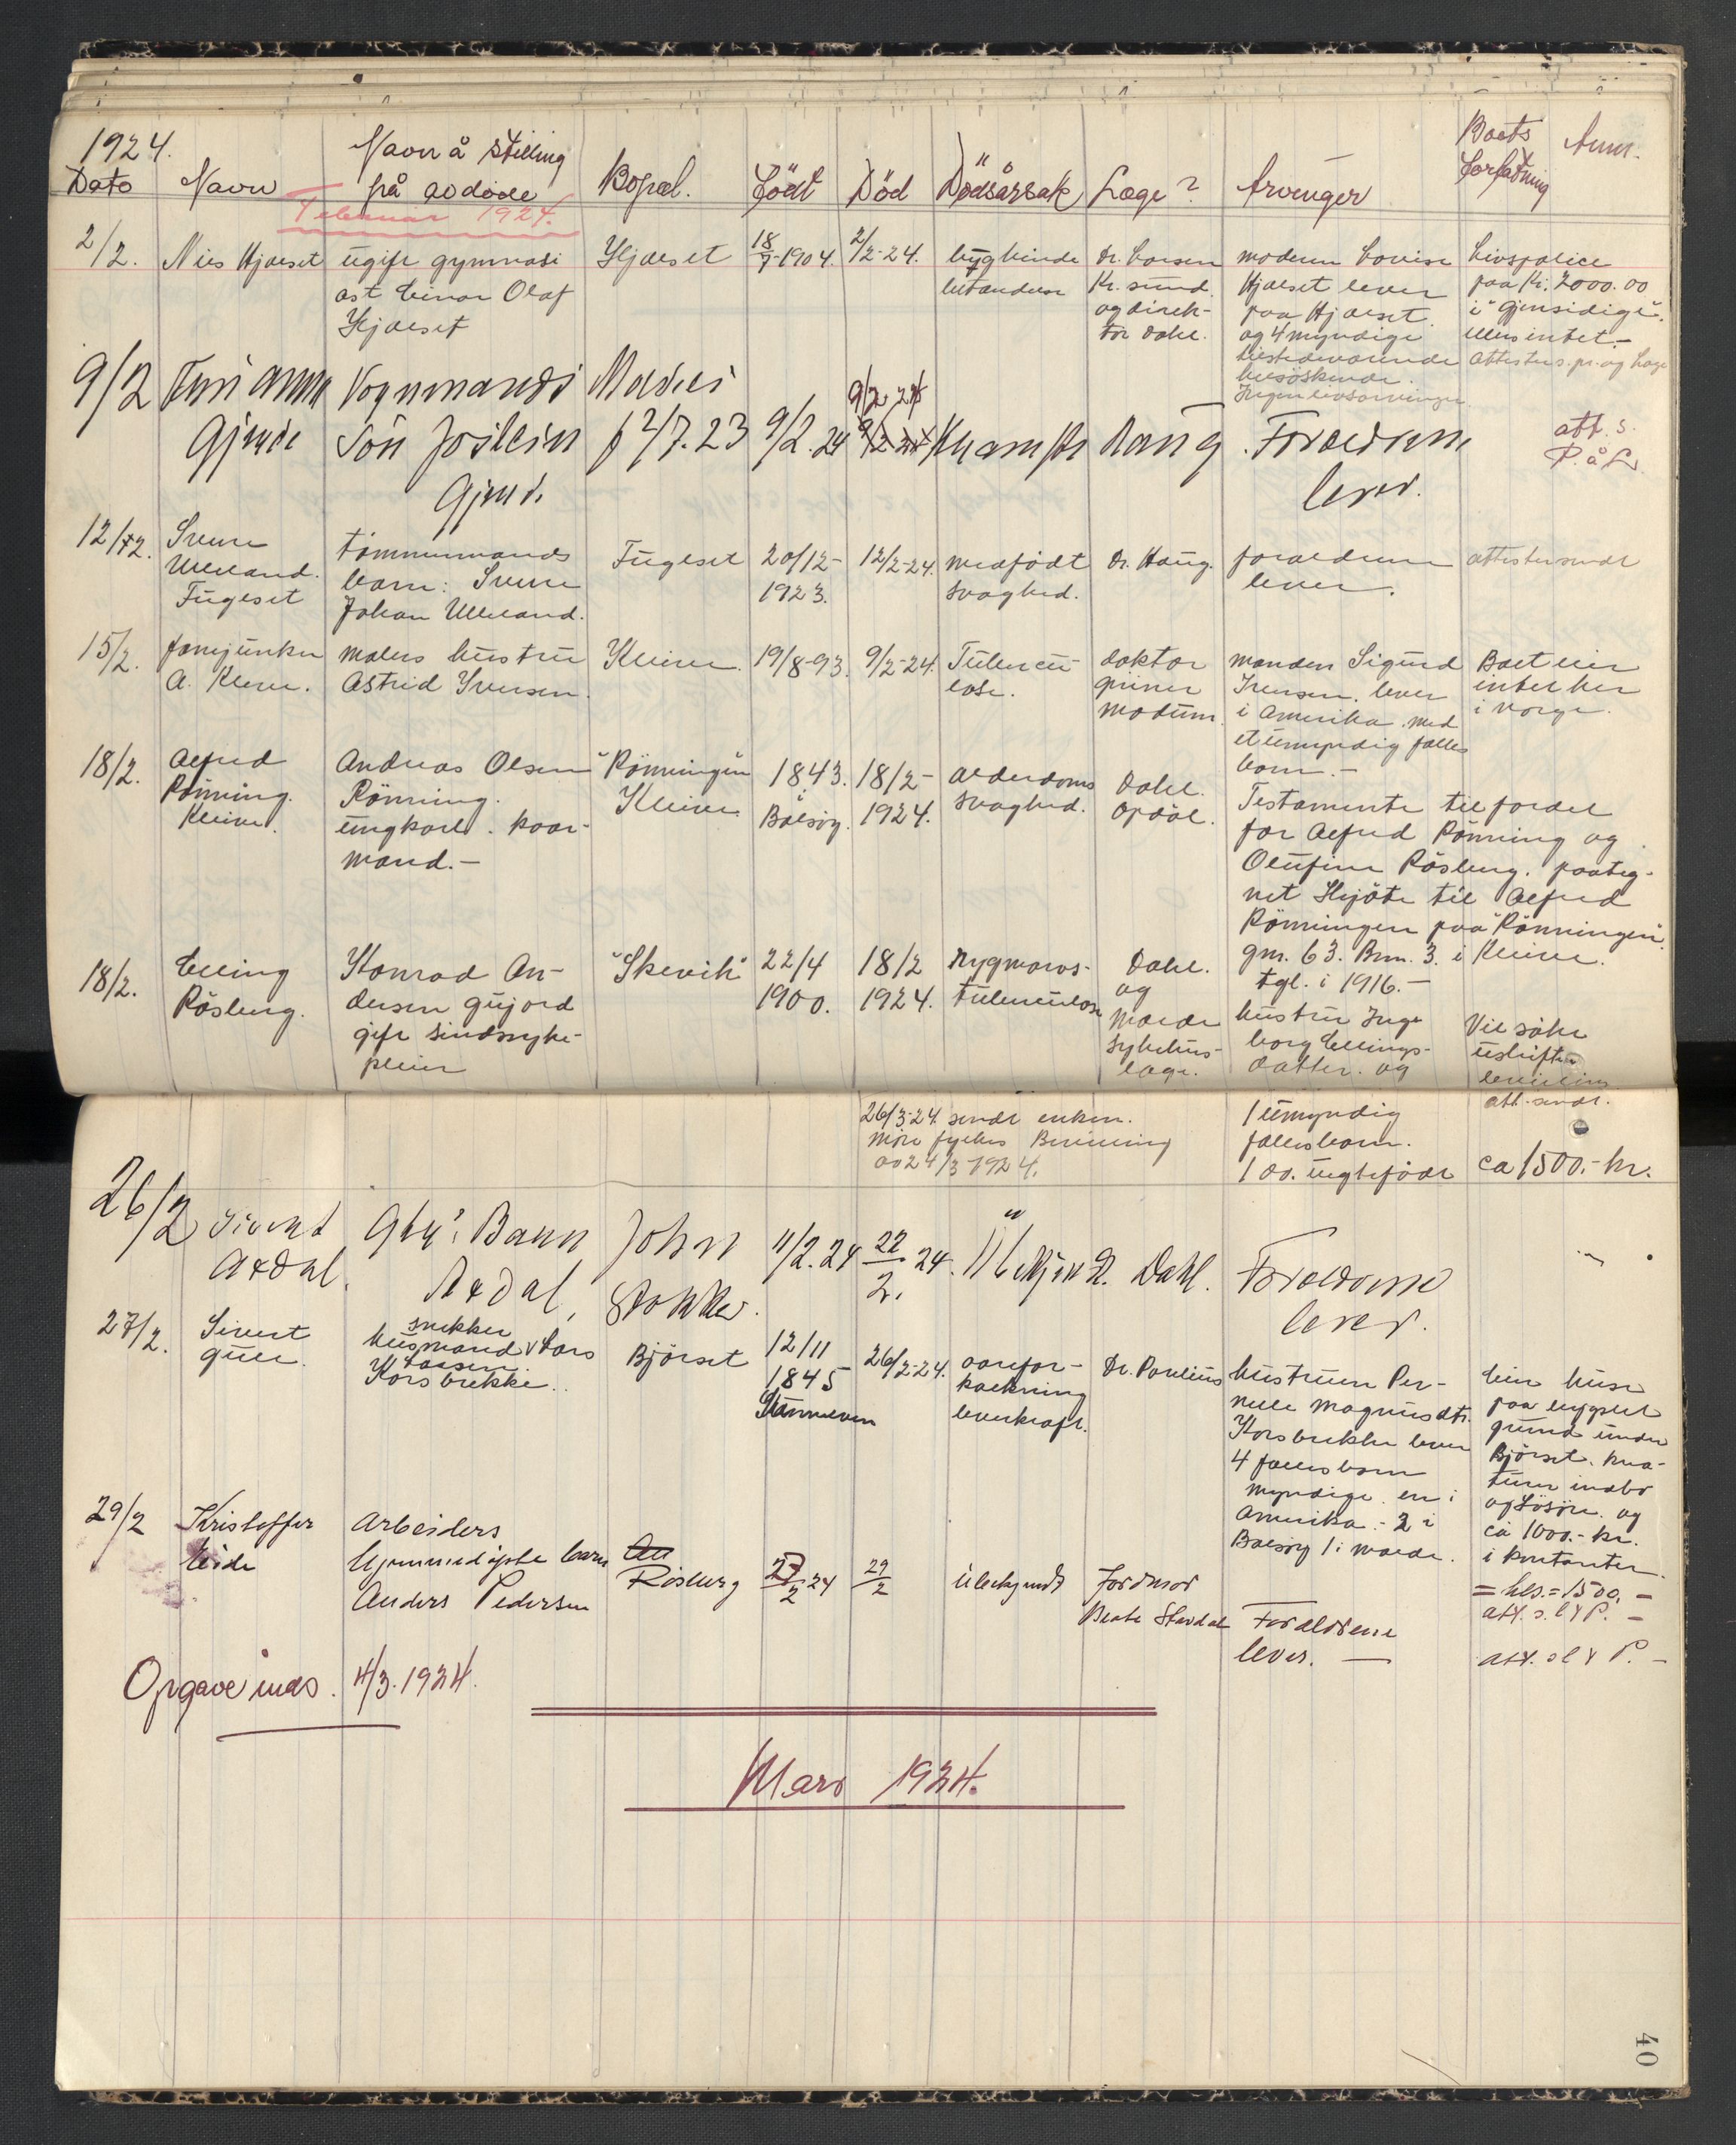 1924.
Dato
Navn
Navn å Stilling
på avdøde
Bopæl.
Född
Död
Dödsårsak
Læge?
Arvinger
Boets
forfatning
Anm.
Februar 1924.
2/2.
Nils Hjælset
ugift gymnasi
ast Einar Olaf
Hjælset
Hjælset
18/7-1904.
2/2-24.
bughinde
betændelse
Dr. Larsen
Kr. sund
og direk-
tör Dahl.
moderen Lovise
Hjælset lever
paa Hjælset.
og 4 myndige
tilstedeværende
helsöskende.
Ingen livsarvinger.
Livspolice
paa Kr. 2000.00
i "Gjensidige".
ellers intet.-
attester s. pr. og Læge
9/2
Gjende
Vognmands
Sön Jostein
Gjend.
f 2/7.23
9/2.24
9/2 24
Haug.
Forældrene
lever.
att. s.
P. å L.
12/2.
Sverre
Ulleland.
Fugelset
tömmermands
barn: Sverre
Johan Ulleland.
Fugelset
20/12-
1923.
12/2-24.
medfödt
svaghed.
Dr. Haug.
forældrene
lever.
attester sendt
15/2.
fanejunker
A. Kleive.
malers hustru
Astrid Iversen.
Kleive.
19/8-93.
9/2-24.
Tubercu-
lose.
doktor
grüner
modum.
manden Sigurd
Iversen. lever
i Amerika. med
et umyndig fælles
barn.-
Boet eier
intet her
i norge.
18/2.
Alfred
Rönning.
Kleive.
Andreas Olsen
Rönning.
ungkarl. kaar-
mand.-
"Rönningen"
Kleive.
1843.
i
Bolsöy.
18/2-
1924.
alderdoms
svaghed.
Dahl.
Opdöl.
Testamente til fordel
for Alfred Rönning og
Olufine Rösberg. paateg-
net Skjöte til Alfred
Rönningen paa "Rönningen".
gnr. 63. Brn. 3. i Kleive.
tgl. i 1916.-
18/2.
Elling
Rösberg.
Konrad An-
dersen Gujord
gift sindssyke-
pleier
"Skevik"
22/4
1900.
18/2
1924.
rygmarvs-
tuberculose
Dahl.
og
Molde
Sykehus-
læge.
hustru Inge
borg Ellings-
datter. og
1 umyndig
fællesbarn.
1 do. uegtefödt
Vil söke
uskifte
bevilling
att. sendt.
ca 1500.- kr.
26/3-24. sendt enken.
Möre fylkes Bevilling
av 24/3 1924.
26/2
Sivert
Axdal.
Gbr. Barn
Axdal,
John
Stokke.
11/2.24
22/2. 24.
Ubekjendt.
Dahl.
Forældrene
lever.
27/2.
Sivert
Gule.
snekker
husmand Lars
Larsen.
Korsbrekke.
Björset
12/11
1845
Stranden
26/2-24.
aarefor-
kalkning
leverkræft.
Dr. Paulius
hustruen Per-
nelle Magnusdtr.
Korsbrekke lever
4 fællesbarn
myndige. en i
Amerika.- 2 i
Bolsöy 1 i molde.
Eier huse
paa bygslet
grund under
Björset. krea-
turer indbo
og lösöre. og
ca 1000.- kr.
i kontanter.
= kls. = 1500.-
att. s. L & P. -
29/2
Kristoffer
Eide
Arbeiders
hjemmedöpte barn
Anders Pedersen
Rösberg
27/2 24
29/2
Ubekjendt
Jordmor
Beate Stordal
Forældrene
lever. -
att. s L & P. -
Opgave inds. 4/3. 1924.
Mars 1924.
40